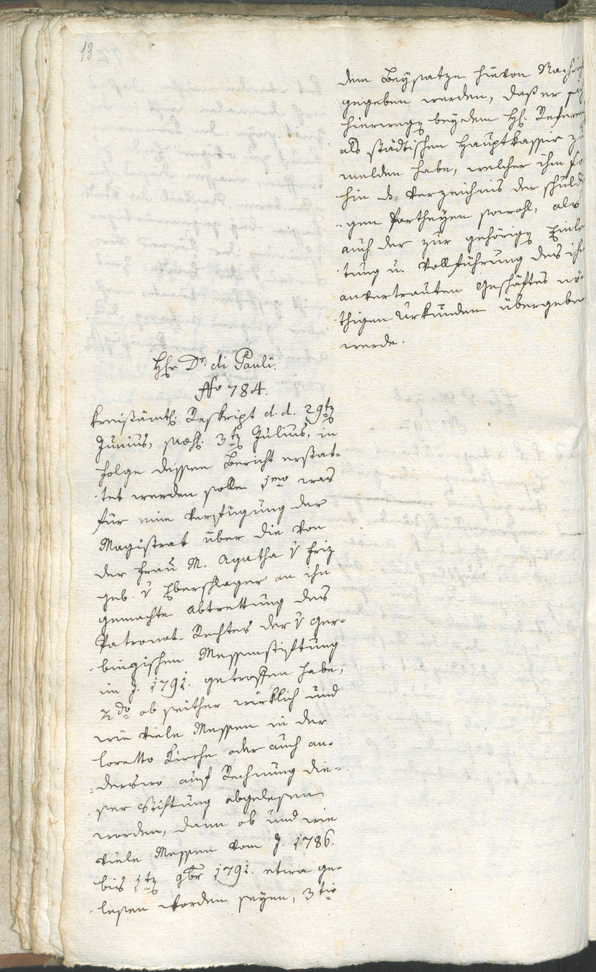 13
dem Beysatze hievon Nachricht
gegeben werden, daß er sich
hierwegen beydem H. Referenten
als städtischen Hauptkassier zu
melden habe, welcher ihm so-
hin das Verzeichnis der schuldi-
-gen Partheyen sowohl, als
auch der zur gehörigen Einlei-
tung u. Vollführung des ihm
anvertrauten Geschäftes nö-
thigen Urkunden übergeben
werde.
Hr Dr. di Pauli.
No 784.
Kreisämtl. Reskript d. d. 29ten
Junius, praes. 3ten Julius, in
Folge dessen Bericht erstat-
-tet werden solle 1mo was
für eine Verfügung der
Magistrat über die von
der Frau M. Agatha v
geb. v Eberschlager an ihn
gemachte Abtrettung des
Patronat-Rechtes der v Ger-
-bingischen Messenstiftung
im J. 1791. getroffen habe,
2do ob seither wirklich und
wie viele Messen in der
Loretto Kirche oder auch an-
-derswo auf Rechnung die-
-ser Stiftung abgelesen
worden, dann ob und wie
viele Messen vom J. 1786.
bis 1ten 9ber 1791. etwa ge-
-lesen worden seyen, 3tio